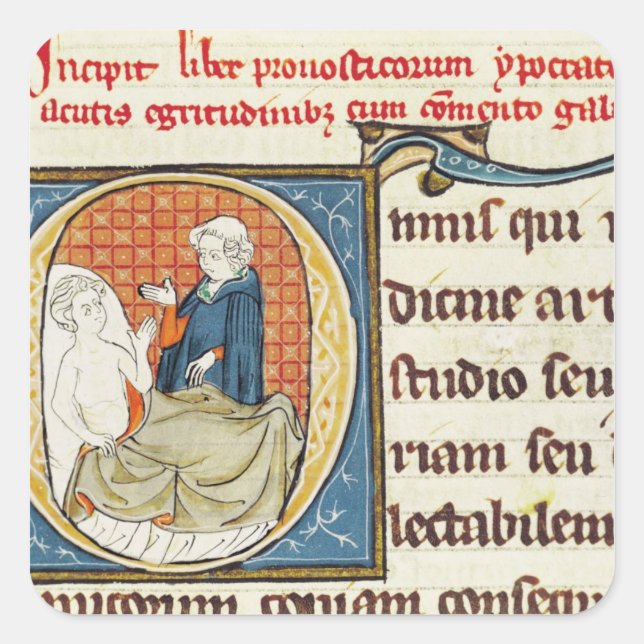 Incipit liber pronosticorum ypocrat
acutis egritudinibz cum comento gal
Omnis qui
dicine art
studio seu
riam seu
lectabilem
micorum copiam consequ